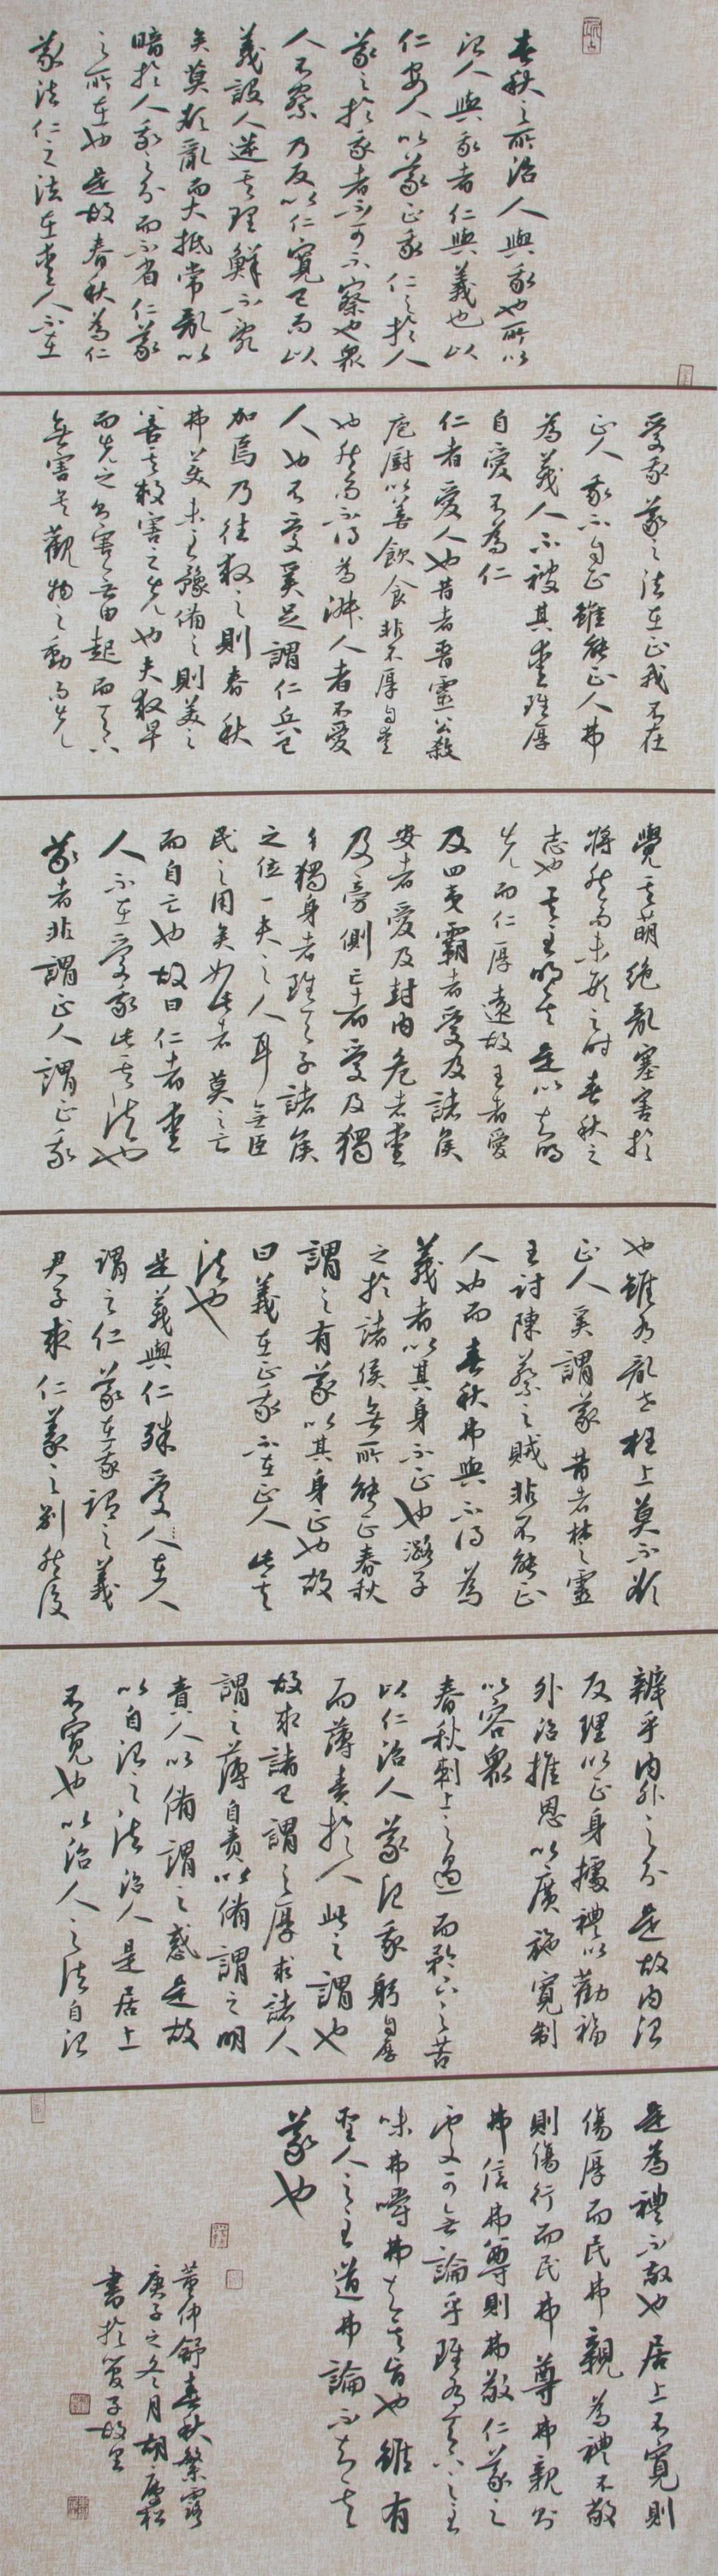 春秋之所治人與我也所以
治人與我者仁與義也以
仁安人以義正我仁之於人
義之於我者不可不察也衆
人不察乃反以仁寬己而以
義設人逆其理鮮不亂
矣莫欲亂而大抵常亂以
暗於人我之分而不省仁義
之所在也是故春秋為仁
義法仁之法在愛人不在
愛我義之法在正我不在
正人我不自正雖能正人弗
為義人不被其愛雖厚
自愛不為仁
仁者愛人也昔者晋靈公殺
庖厨以善飲食非不厚自愛
也然而不得為淑人者不愛
人也不愛奚足謂仁兵已
加焉乃往救之則春秋
弗美未至豫備之則美之
善其救害之先也夫救早
而先之則害無由起而天下
無害矣觀物之動而先
覺其萌絕亂塞害於
將然而未形之時春秋之
志也其至明矣是以知明
先而仁厚遠故王者愛
及四夷霸者愛及諸侯
安者愛及封內危者愛
及旁側亡者愛及獨
身獨身者雖天子諸侯
之位一夫之人耳無臣
民之用矣如此者莫之亡
而自亡也故曰仁者愛
人不在愛我此其法也
義者非謂正人謂正我
也雖有亂世枉上莫不欲
正人奚謂義昔者楚靈
王討陳蔡之賊非不能正
人也而春秋弗與不得為
義者以其身不正也潞子
之於諸侯無所能正春秋
謂之有義以其身正也故
曰義在正我不在正人此其
法也
是義與仁殊愛人在人
謂之仁義在我謂之義
君子求仁義之別然後
辨乎內外之分是故內治
反理以正身據禮以勸福
外治推恩以廣施寬制
以容眾
春秋刺上之過而矜下之苦
以仁治人義治我躬自厚
而薄責於人此之謂也
故求諸己謂之厚求諸人
謂之薄自責以備謂之明
責人以備謂之惑是故
以自治之法治人是居上
不寬也以治人之法自治
是為禮不敬也居上不寬則
傷厚而民弗親為禮不敬
則傷行而民弗尊弗親則
弗信弗尊則弗敬仁義之
處可無論乎雖有天下之至
味弗嚼弗知其旨也雖有
聖人之至道弗論不知其
義也
董仲舒春秋繁露
庚子之冬月胡慶松
書於管子故里